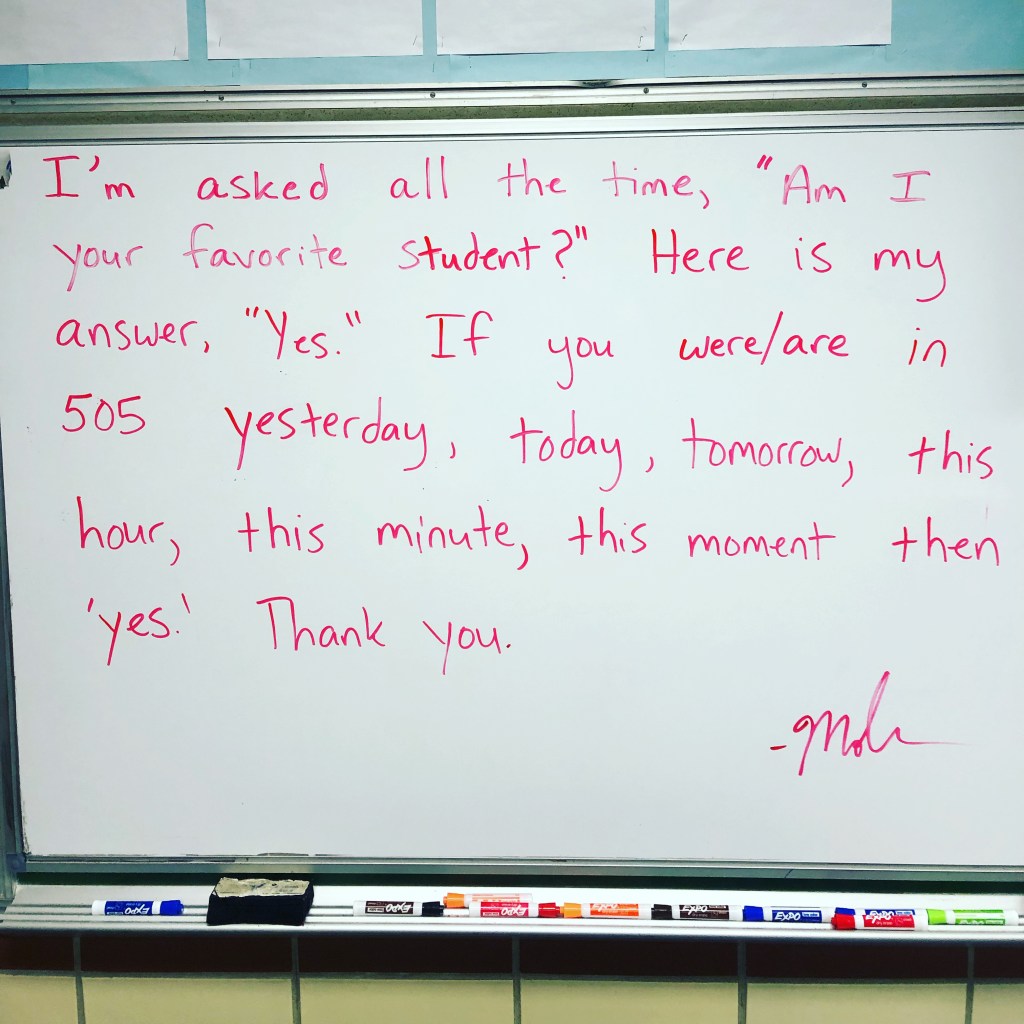 I'm asked all the time, "Am I
your favorite student?" Here is my
answer, "Yes." If you were/are in
505 yesterday, today, tomorrow, this
hour, this minute, this moment then
'yes.' Thank you.
EXPO
EXPO
EXPO
EXPO
EXPO
EXPO
EXPO